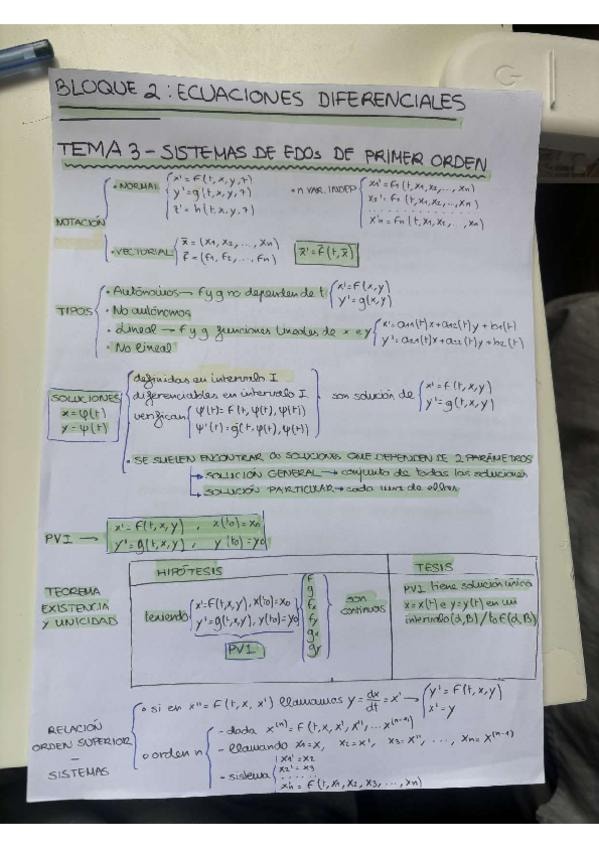 BLOQUE 2: ECUACIONES DIFERENCIALES
TEMA 3 - SISTEMAS DE EDOs DE PRIMER ORDEN
NOTACIÓN
• NORMAL { x' = f(t, x, y, z)
y' = g(t, x, y, z)
z' = h(t, x, y, z)
• n VAR. INDEP { x1' = f1(t, x1, x2, ..., xn)
x2' = f2(t, x1, x2, ..., xn)
..........
x'n = fn(t, x1, x2, ..., xn)
• VECTORIAL { x̄ = (x1, x2, ..., xn)
f̄ = (f1, f2, ..., fn)
x̄' = f̄(t, x̄)
TIPOS
• Autónomos → f y g no dependen de t { x' = f(x, y)
y' = g(x, y)
• No autónomos
• Lineal → f y g funciones lineales de x e y { x' = a11(t)x + a12(t)y + b1(t)
y' = a21(t)x + a22(t)y + b2(t)
• No lineal
SOLUCIONES
x = φ(t)
y = ψ(t)
definidas en intervalo I
diferenciables en intervalo I
verifican { φ'(t) = f(t, φ(t), ψ(t))
ψ'(t) = g(t, φ(t), ψ(t))
son solución de { x' = f(t, x, y)
y' = g(t, x, y)
• SE SUELEN ENCONTRAR ∞ SOLUCIONES QUE DEPENDEN DE 2 PARÁMETROS
→ SOLUCIÓN GENERAL → conjunto de todas las soluciones
→ SOLUCIÓN PARTICULAR → cada una de ellas
PVI → x' = f(t, x, y), x(t0) = x0
y' = g(t, x, y), y(t0) = y0
TEOREMA
EXISTENCIA
Y UNICIDAD
HIPÓTESIS
teniendo { x' = f(t, x, y), x(t0) = x0
y' = g(t, x, y), y(t0) = y0
PVI
f
g
fx
fy
gx
gy
son
continuas
TESIS
PVI tiene solución única
x = x(t) e y = y(t) en un
intervalo (α, β) / t0 ∈ (α, β)
RELACIÓN
ORDEN SUPERIOR
-
SISTEMAS
• si en x'' = f(t, x, x') llamamos y = dx/dt = x' → { y' = f(t, x, y)
x' = y
• orden n
- dada x^(n) = f(t, x, x', x'', ... x^(n-1))
- llamando x1 = x, x2 = x', x3 = x'', ..., xn = x^(n-1)
- sistema { x1' = x2
x2' = x3
.......
xn' = f(t, x1, x2, x3, ..., xn)